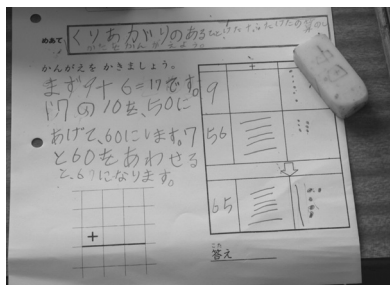 めあて くりあがりのある
かんがえを かきましょう。
まず9+6=17です。
17の10を、50に
あげて、60にします。7
と60をあわせる
と、67になります。
9
56
65
+
答え